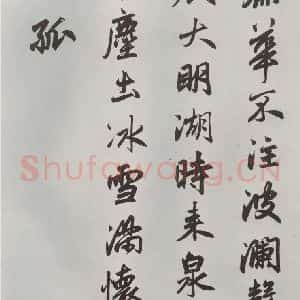 華不注波瀾聲
大明湖時来泉
塵土冰雪滿懷
孤
Shufawang.CN